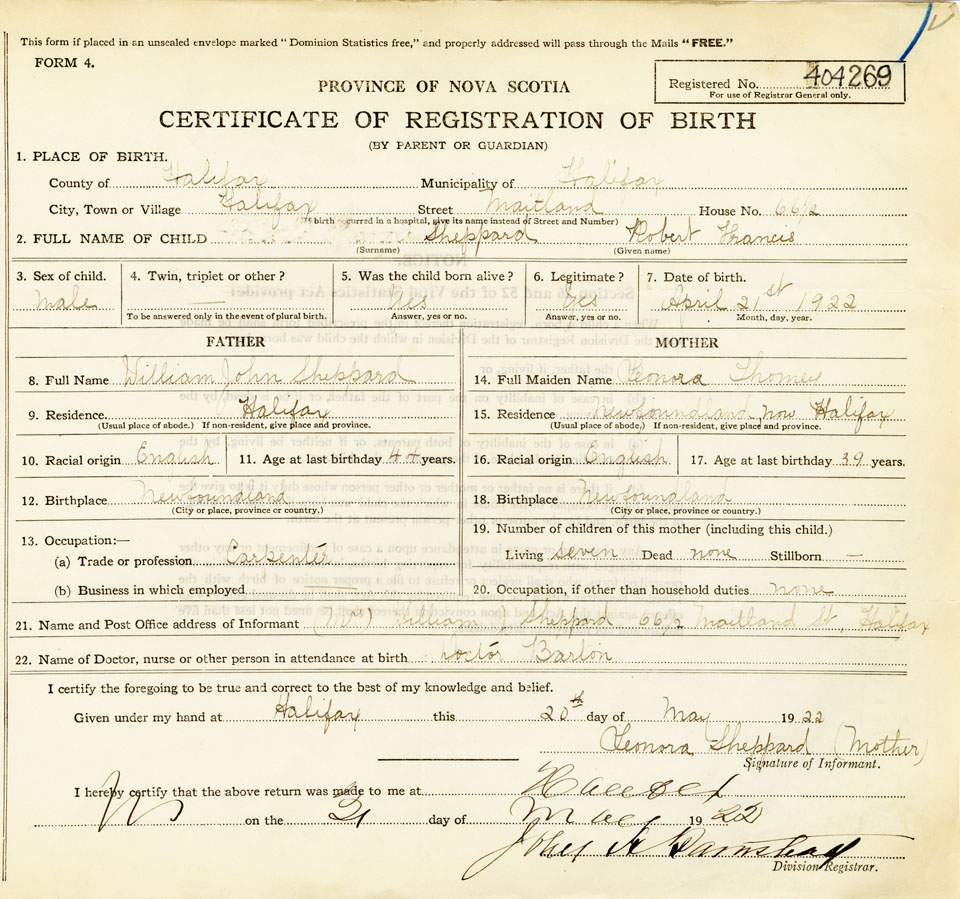 This form if placed in an unsealed envelope marked "Dominion Statistics free," and properly addressed will pass through the Mails "FREE."
FORM 4.
PROVINCE OF NOVA SCOTIA
Registered No. 404269
For use of Registrar General only.
CERTIFICATE OF REGISTRATION OF BIRTH
(BY PARENT OR GUARDIAN)
1. PLACE OF BIRTH.
County of Halifax Municipality of Halifax
City, Town or Village Halifax Street Maitland House No. 66½
(If birth occurred in a hospital, give its name instead of Street and Number)
2. FULL NAME OF CHILD Sheppard Robert Francis
(Surname) (Given name)
3. Sex of child. 4. Twin, triplet or other? 5. Was the child born alive? 6. Legitimate? 7. Date of birth.
Male — Yes Yes April 21st 1922
To be answered only in the event of plural birth. Answer, yes or no. Answer, yes or no. Month, day, year.
FATHER MOTHER
8. Full Name William John Sheppard 14. Full Maiden Name Leonora Thomey
9. Residence Halifax 15. Residence Newfoundland now Halifax
(Usual place of abode.) If non-resident, give place and province. (Usual place of abode.) If non-resident, give place and province.
10. Racial origin English 11. Age at last birthday 44 years. 16. Racial origin English 17. Age at last birthday 39 years.
12. Birthplace Newfoundland 18. Birthplace Newfoundland
(City or place, province or country.) (City or place, province or country.)
13. Occupation:— 19. Number of children of this mother (including this child.)
(a) Trade or profession Carpenter Living seven Dead none Stillborn —
(b) Business in which employed — 20. Occupation, if other than household duties none
21. Name and Post Office address of Informant William J Sheppard 66½ Maitland St, Halifax
22. Name of Doctor, nurse or other person in attendance at birth Doctor Barton
I certify the foregoing to be true and correct to the best of my knowledge and belief.
Given under my hand at Halifax this 20th day of May 1922
Leonora Sheppard (Mother)
Signature of Informant.
I hereby certify that the above return was made to me at Halifax
on the day of 1922
Division Registrar.